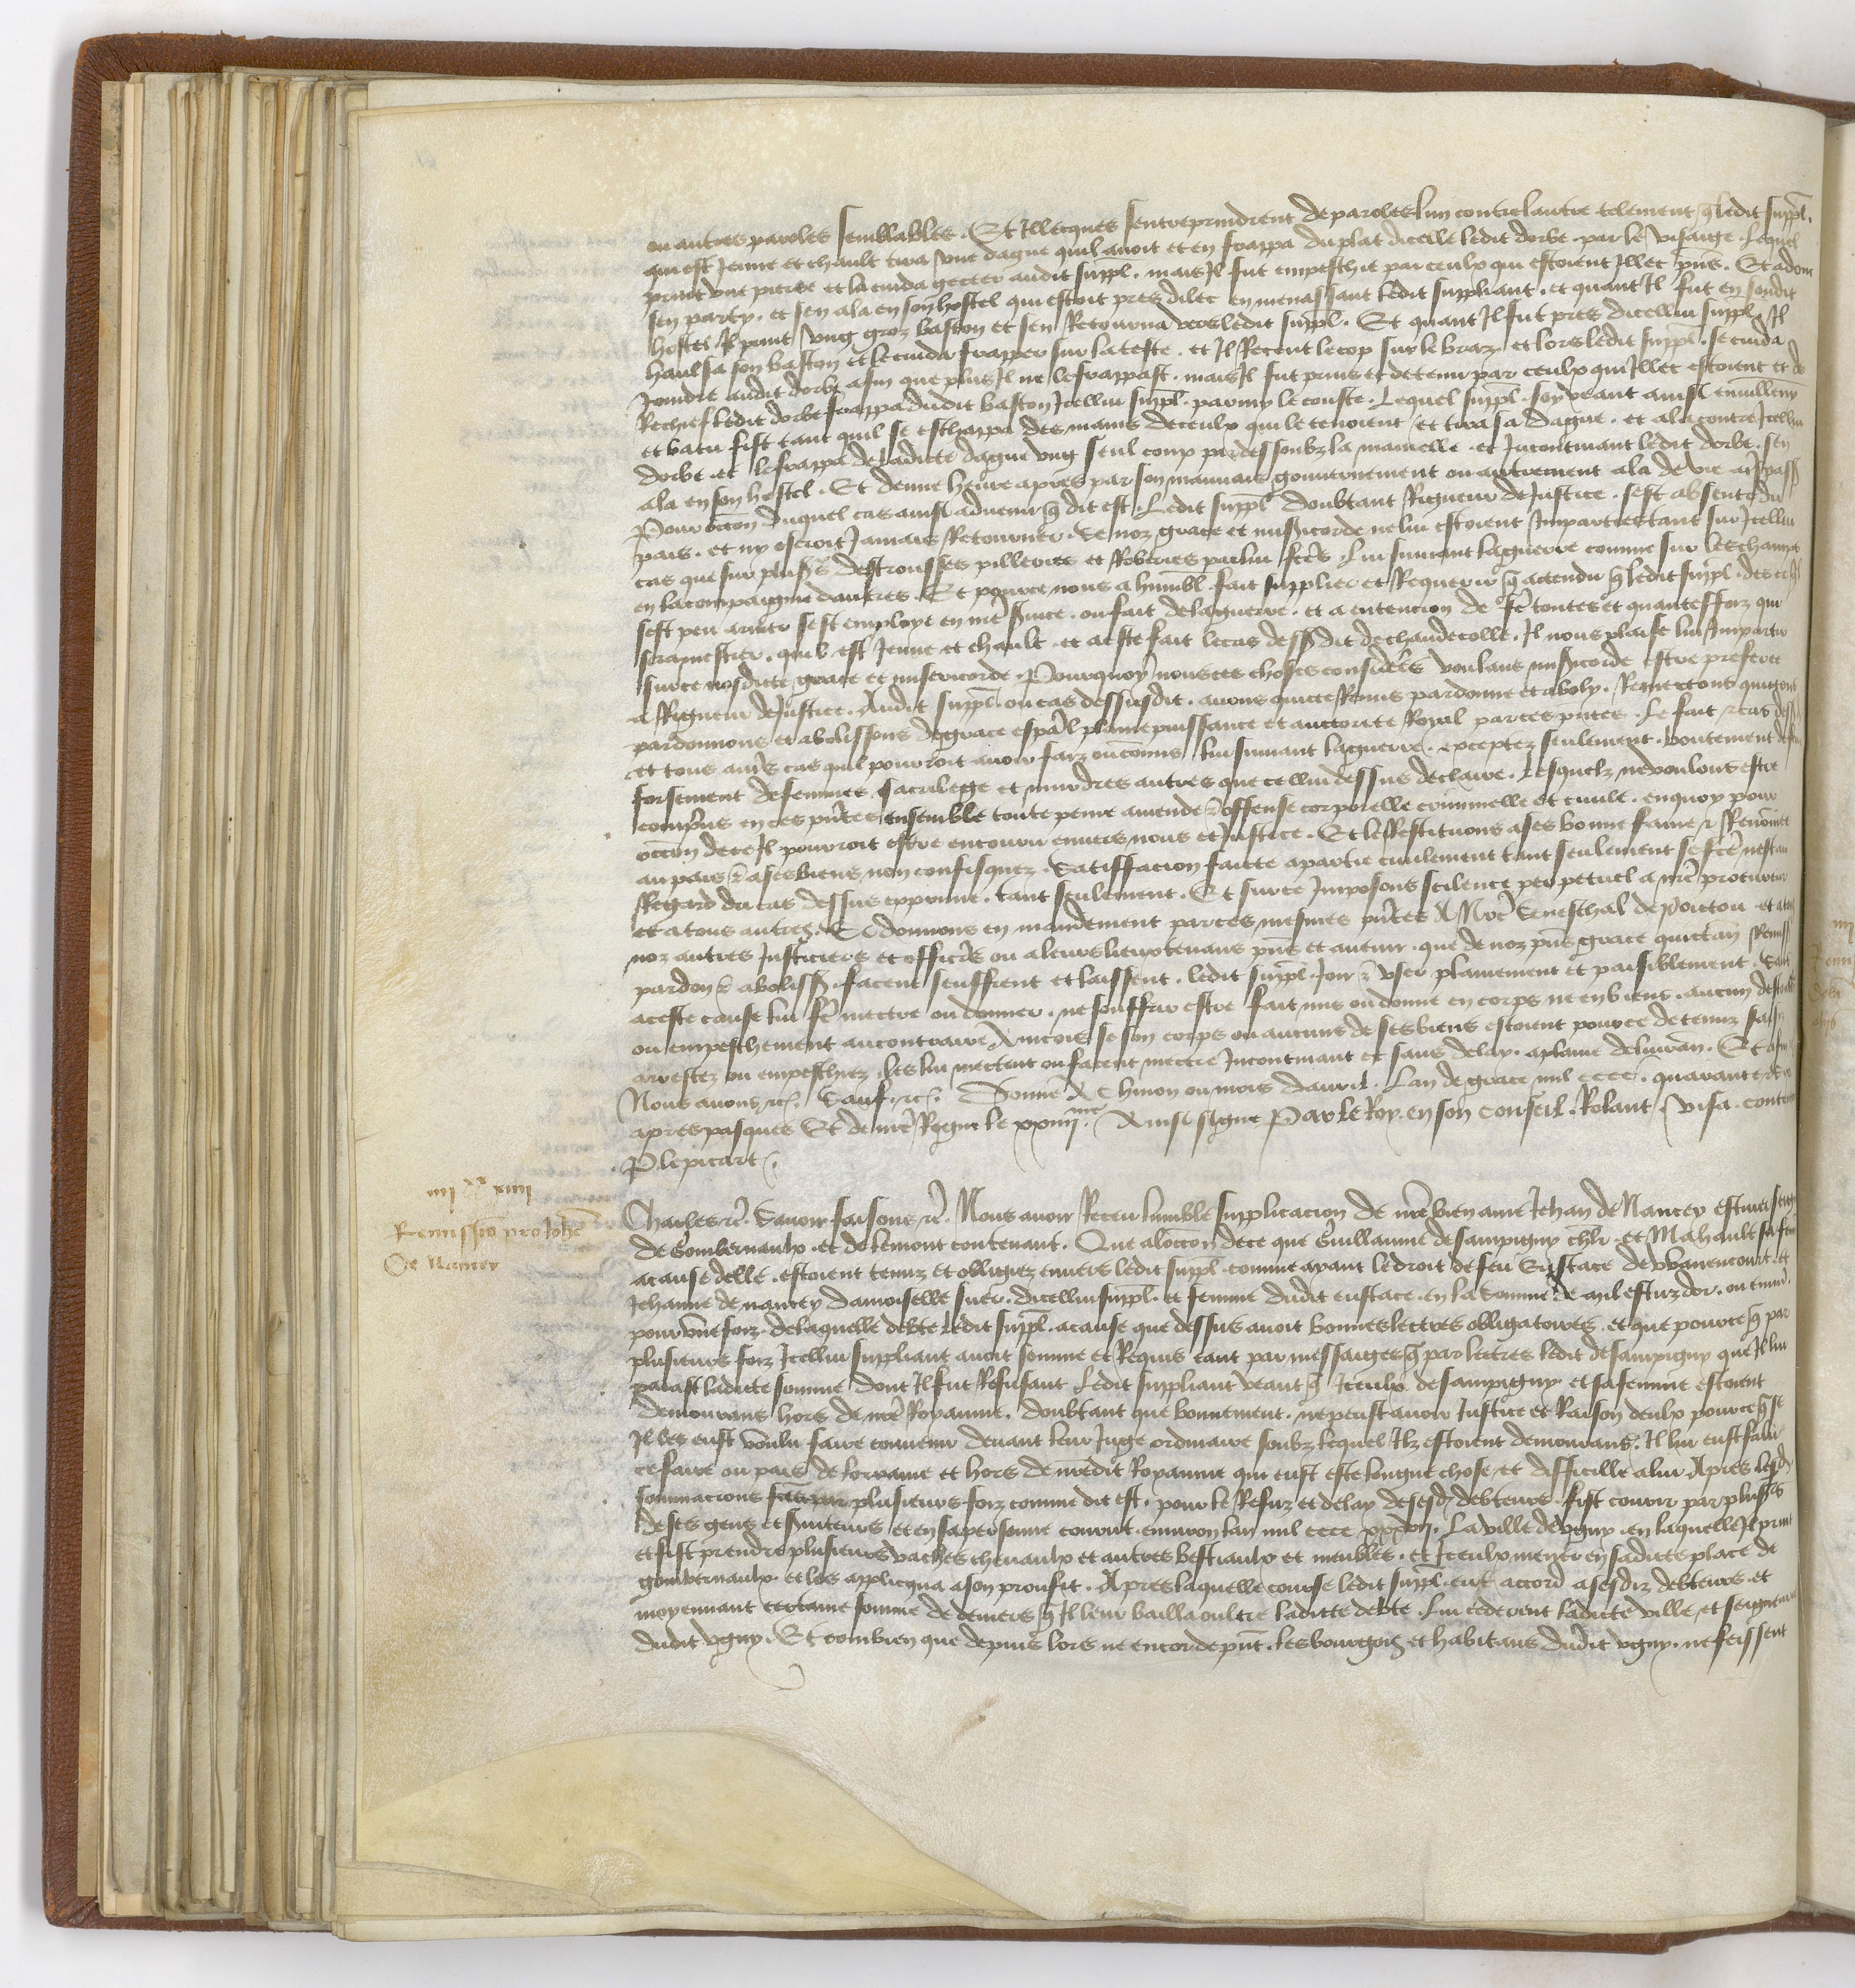 ou autres paroles semblables. Et Illecques sentreprindrent de paroles lun contre lautre telement q̃ ledit suppl.
qui est Jeune et chault tira une dague quil avoit et en frappa du plat dicelle ledit dorbe par le visaige. Lequel
print une pierre et la cuida gecter audit suppl. mais Il fut empeschie par ceulx qui estoient Illec pñs. Et adonc
sen party. et sen ala en son hostel qui estoit pres dilec en menassant ledit suppliant. et quant Il fut en sondit
hostel Il print ung groz baston et sen Retourna vers ledit suppl. Et quant Il fut pres dicellui suppl. Il
haulsa son baston et le cuida frapper sur la teste. et Il Receut le cop sur le braz. et lors ledit suppl. se cuida
Joindre audit dorbe afin que plus Il ne le frappast. mais Il fut prins et detenu par ceulx qui Illec estoient et de
Rechief ledit dorbe frappa dudit baston Icellui suppl. parmy le couste. Lequel suppl. soy veant ainsi
et batu fist tant quil se eschappa des mains de ceulx qui le tenoient et tira sa dague. et ala contre Icellui
dorbe. et le frappa de ladicte dague ung seul coup par dessoubz la mamelle. et Incontinant ledit dorbe. sen
ala en son hostel. Et demie heure apres par son mauvais gouvernement ou autrement ala de vie a trespass
Pour occon duquel cas ainsi advenu q̃ dit est. Ledit suppl doubtant Rigueur de Justice. sest absente du
pais. et ny oseroit Jamais Retourner. Se noz grace et misicorde ne lui estoient Imparties tant sur Icellui
cas que sur plusrs destrousses pilleries et Roberies par lui fctes. lui suivant la guerre comme sur les champs
en la compaignie dautres. Et pource nous a humbl. fait supplier et Requerir q̃ actendu q̃ ledit suppl.
sest peu armer sest employe en nrē service. ou fait de la guerre. et a entencion de fē toutes et quantesfoiz que
sera mestier. quil est Jeune et chault. et a este fait le cas dessdit de chaudecolle. Il nous plaise lui Impartir
sur ce nosdicte grace et misericorde. Pourquoy nous ces choses considerés voulans misicorde estre preferee
a Rigueur de Justice. Audit suppl. ou cas dessusdit. avons quicte Remis pardonne et aboly. Remectons quictons
pardonnons et abolissons de grace espal plaine puissance et auctorite Royal par ces pntes. Le fait et cas dess
et tous autrs cas quil pourroit avoir faiz ou commis lui suivant la guerre. exceptez seulement. boutement de feu
forsement de femmes. sacrilege et murdres autres que cellui dessus declaire. Lesquelz ne voulons estre
comprins en ces pñtes ensemble toute peine amende & offense corporelle criminelle et civile. en quoy pour
occon de ce Il pourroit estre encouru envers nous et Justice. Et le Restituons a ses bonne fame & Renōmee
au pais & a ses biens non confisquez. Satisffacion faicte a partie civilement tant seulement se fcte nest au
Regard du cas dessus exprime. tant seulement. Et sur ce Imposons scilence perpetuel a nrē procureur
et a tous autres. Si donnons en mandement par ces mesmes pñtes A Nrē Seneschal de Poictou. et a tous
noz autres Justiciers et officirs ou a leurs lieuxtenans pñs et avenir. que de noz pñs grace quictan Remiss
pardon & aboliss. facent seuffrent et laissent. ledit suppl. Joir & user plainement et paisiblement. Sans
a ceste cause lui fē mectre ou donner. ne souffrir estre fait mis ou donne en corps ne en biens. aucun destour
ou empeschement au contraire Aincois se son corps ou aucuns de ses biens estoient pource detenuz saisiz
arrestez ou empeschiez. les lui mectent ou facent mectre Incontinant et sans delay. a plaine delivran. Et afin
Nous avons &c. Sauf. &c. Donne A Chinon ou mois davril. Lan de grace mil cccc. quarante
apres pasques Et de nrē Regne le xxiiii.me Ainsi signe Par le Roy. en son conseil. Rolant. Visa. conten
P. lepicart.

iiii xx xiiii
Remissio pro Johē
De Nancey

Charles &c. Savoir faisons &c. Nous avoir Receu lumble supplicacion de nrē bien ame Jehan de Nancey escuier seigneur
de Gombervaulx. et de lemont contenant. Que a loccon de ce que Guillaume de sampigny chlr. et Mahault sa femme
a cause delle. estoient tenuz et obligez envers ledit suppl. comme ayant le droit de feu Eustace de Waurencourt. et
Jehanne de nancey damoiselle suer. dicellui suppl. et femme dudit eustace. en la somme de mil escuz dor. ou
pour une foiz. de laquelle debte ledit suppl. a cause que dessus avoit bonnes lectres obligatoires. et que pource q̃ par
plusieurs foiz Icellui suppliant avoit somme et Requis tant par messaiges q̃ par lectres ledit de sampigny que Il lui
paiast ladicte somme dont Il fut Refusant Ledit suppliant veant q̃ Iceulx de sampigny et sa femme estoient
demourans hors de nrē Royaume. doubtant que bonnement. ne peust avoir Justice et Raison deulx pource q̃ se
Il les eust voulu faire convenir devant leur Juge ordinaire soubz lequel Ilz estoient demourans. Il lui eust falu
ce faire ou pais de lorraine et hors de nredit Royaume qui eust este longue chose et difficille a lui Apres lesd.
sommacions fctes par plusieurs foiz comme dit est. pour le Refuz et delay de sesd. debteurs. fist courir par plusrs
de ses gens et svuiteurs et en sa personne courut. environ lan mil cccc xxxvii. La ville de vgny. en laquelle Il print
et fist prendre plusieurs vaches chevaulx et autres bestiaulx et meubles. et Iceulx mener en sadicte place de
gombervaulx. et les applicqua a son proufit. Apres laquelle course ledit suppl. eut accord a sesdiz debteurs. et
moyennant certaine somme de deniers q̃ Il leur bailla oultre ladicte debte. Lui cederent ladicte ville et seigneurie
dudit vgny. Et combien que depuis lors ne encor de pñt. les bourgois et habitans dudit vgny. ne feissent